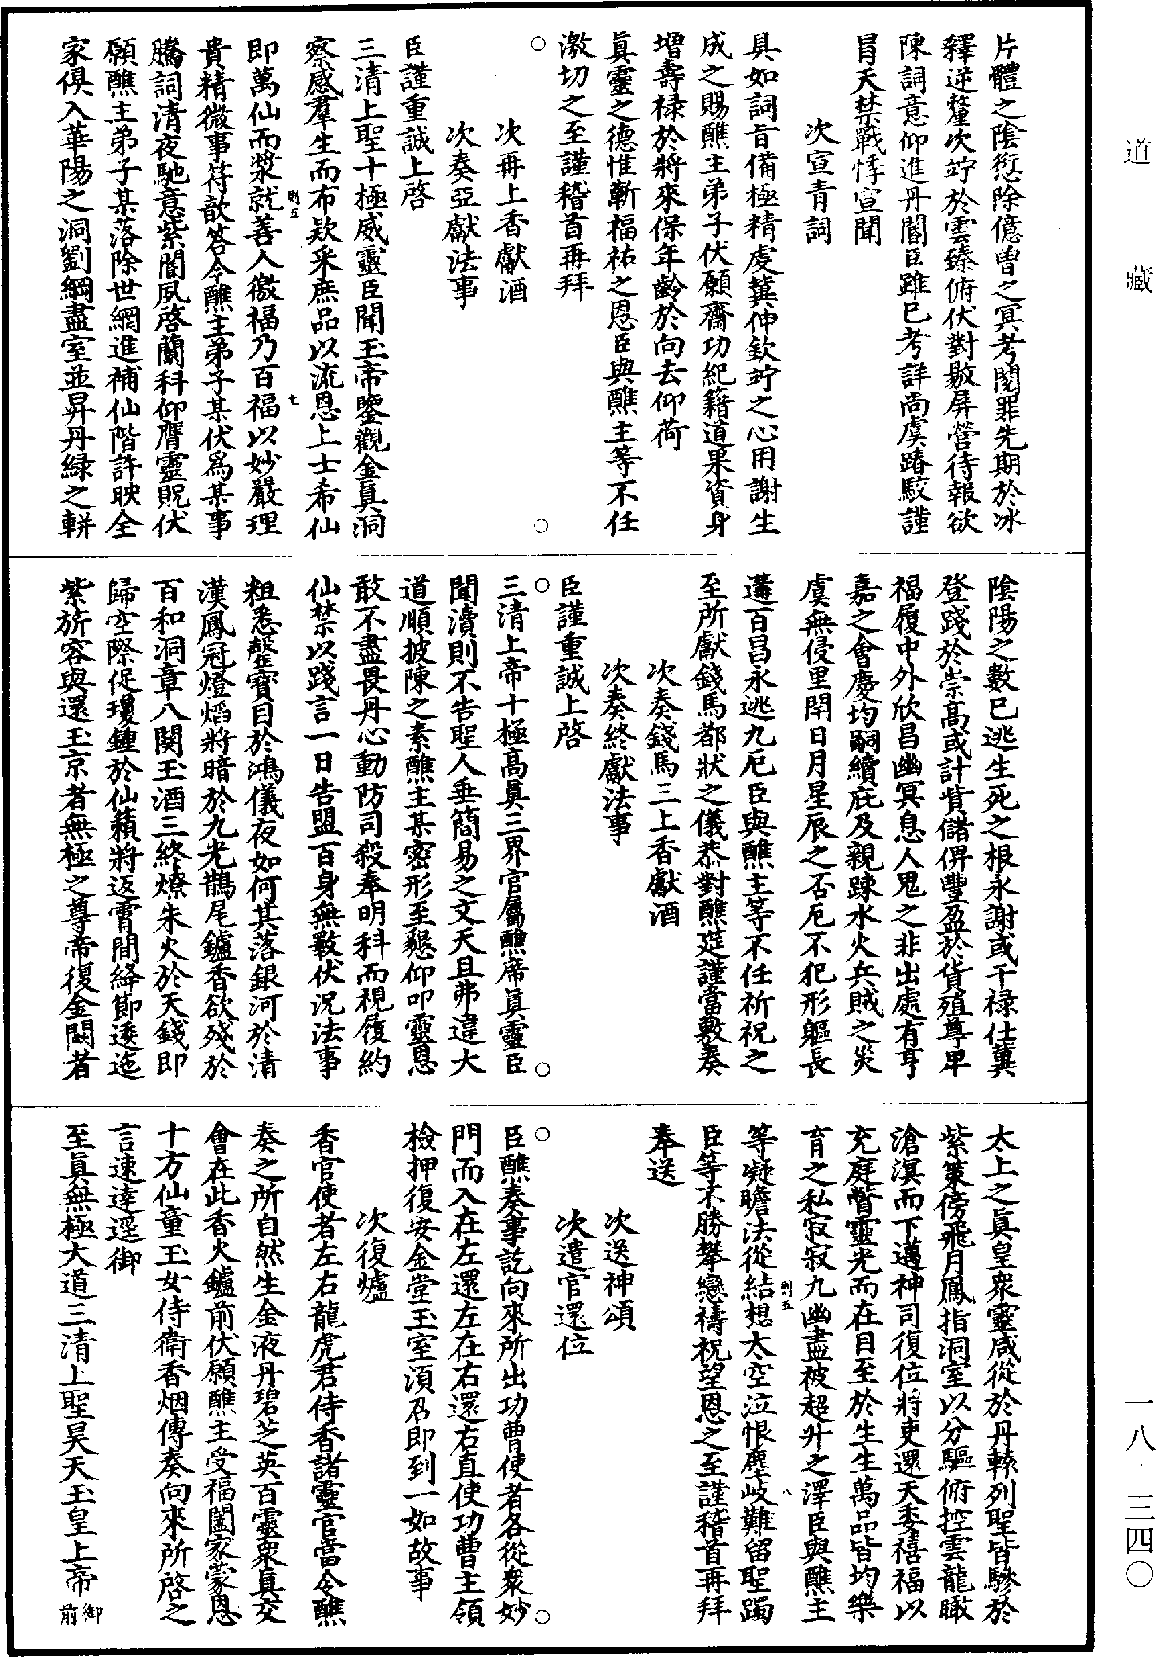 道藏
一八·三四〇
片體之陰愆除億曾之冥考閱罪先期於冰
釋逆釐次竚於雲臻俯伏對敭屏營待報欲
陳詞意仰進丹閽臣雖已考詳尚虞踳駮謹
冒天禁戰悸宣聞
次宣青詞
具如詞旨備極精虔冀伸欽竚之心用謝生
成之賜醮主弟子伏願齋功紀籍道果資身
增壽祿於將來保年齡於向去仰荷
真靈之德惟蘄福祐之恩臣與醮主等不任
激切之至謹稽首再拜
○○
次再上香獻酒
次奏亞獻法事
臣謹重誠上啓
三清上聖十極威靈臣聞玉帝鑒觀金真洞
察感羣生而布款采庶品以流恩上士希仙
即萬仙而槳就善人徼福乃百福以妙嚴理
剛五
七
貴精微事符歆答今醮主弟子某伏爲某事
騰詞清夜馳意紫閽夙啓蘭科仰膺靈貺伏
願醮主弟子某落除世網進補仙階許映全
家俱入華陽之洞劉綱盡室並昇丹綠之輧
陰陽之數已逃生死之根永謝或干祿仕冀
登踐於崇高或計貲儲俾豐盈於貨殖尊卑
福履中外欣昌幽冥息人鬼之非出處有亨
嘉之會慶均嗣續庇及親踈水火兵賊之災
虞無侵里閈日月星辰之否厄不犯形軀長
遘百昌永逃九厄臣與醮主等不任祈祝之
至所獻錢馬都狀之儀恭對醮筵謹當敷奏
次奏錢馬三上香獻酒
次奏終獻法事
臣謹重誠上啓
○○
三清上帝十極高真三界官屬醮席真靈臣
聞瀆則不告聖人垂簡易之文天且弗違大
道順披陳之素醮主某密形至懇仰叩靈恩
敢不盡畏丹心動防司殺奉明科而視履約
仙禁以踐言一日告盟百身無斁伏況法事
粗悉罄寶曰於鴻儀夜如何其落銀河於清
漢鳳冠燈熖將暗於九光鵲尾鑪香欲殘於
百和洞章八闋玉酒三終燎朱火於天錢即
歸空際促瓊鍾於仙籟將返霄間絳節逶迤
紫旂容與還玉京者無極之尊帝復金闕者
太上之真皇衆靈咸從於丹轅列聖皆驂於
紫策傍飛月鳳指洞室以分驅俯控雲龍瞰
滄溟而下邁神司復位將吏還天委禧福以
充庭瞥靈光而在目至於生生萬品皆均樂
育之私寂寂九幽盡被超升之澤臣與醮主
剛五
八
等凝瞻法從結想太空泣恨塵岐難留聖躅
臣等不勝攀戀禱祝望恩之至謹稽首再拜
奉送
次送神頌
次遣官還位
○○
臣醮奏事訖向來所出功曹使者各從衆妙
門而入在左還左在右還右直使功曹主領
檢押復安金堂玉室須召即到一如故事
次復爐
香官使者左右龍虎君侍香諸靈官當令醮
奏之所自然生金液丹碧芝英百靈衆真交
會在此香火鑪前伏願醮主受福闔家蒙恩
十方仙童玉女侍衛香烟傳奏向來所啓之
言速達逕御
至真無極大道三清上聖昊天玉皇上帝御前